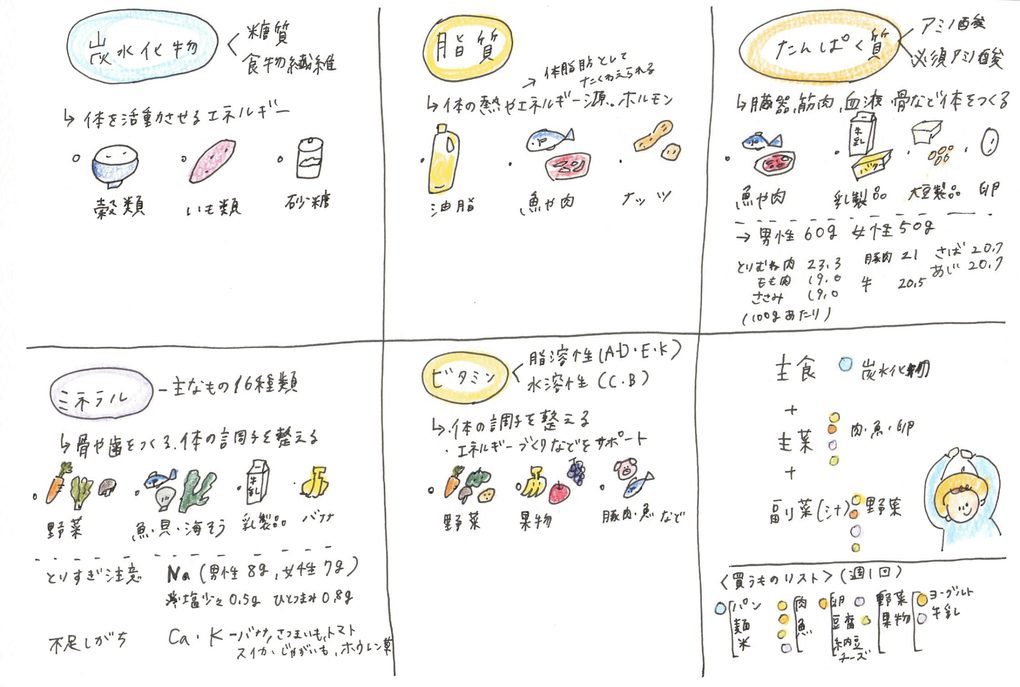 炭水化物
糖質
食物繊維
↳体を活動させるエネルギー
穀類
いも類
砂糖
脂質
→体脂肪として
たくわえられる
↳体の熱やエネルギー源。ホルモン
油脂
魚や肉
ナッツ
たんぱく質
アミノ酸
必須アミノ酸
↳臓器,筋肉,血液,骨など体をつくる
牛乳
バター
魚や肉
乳製品
大豆製品
卵
→男性60g 女性50g
とりむね肉 23.3
もも肉 19.0
ささみ 19.0
(100gあたり)
豚肉 21
牛 20.5
さば 20.7
あじ 20.7
ミネラル
主なもの16種類
↳骨や歯をつくる.体の調子を整える
牛乳
野菜
魚・貝・海そう
乳製品
バナナ
とりすぎ注意 Na(男性8g,女性7g)
塩少々0.5g ひとつまみ0.8g
不足しがち Ca・K-バナナ,さつまいも,トマト
スイカ・じゃがいも,ホウレン草
ビタミン
脂溶性(A・D・E・K)
水溶性(C.B)
↳・体の調子を整える
・エネルギーづくりなどをサポート
野菜
果物
豚肉・魚など
主食 炭水化物
+
主菜 肉・魚・卵
+
副菜(汁) 野菜
<買うものリスト>(週1回)
パン
麺
米
肉
魚
卵
豆腐
納豆
チーズ
野菜
果物
ヨーグルト
牛乳